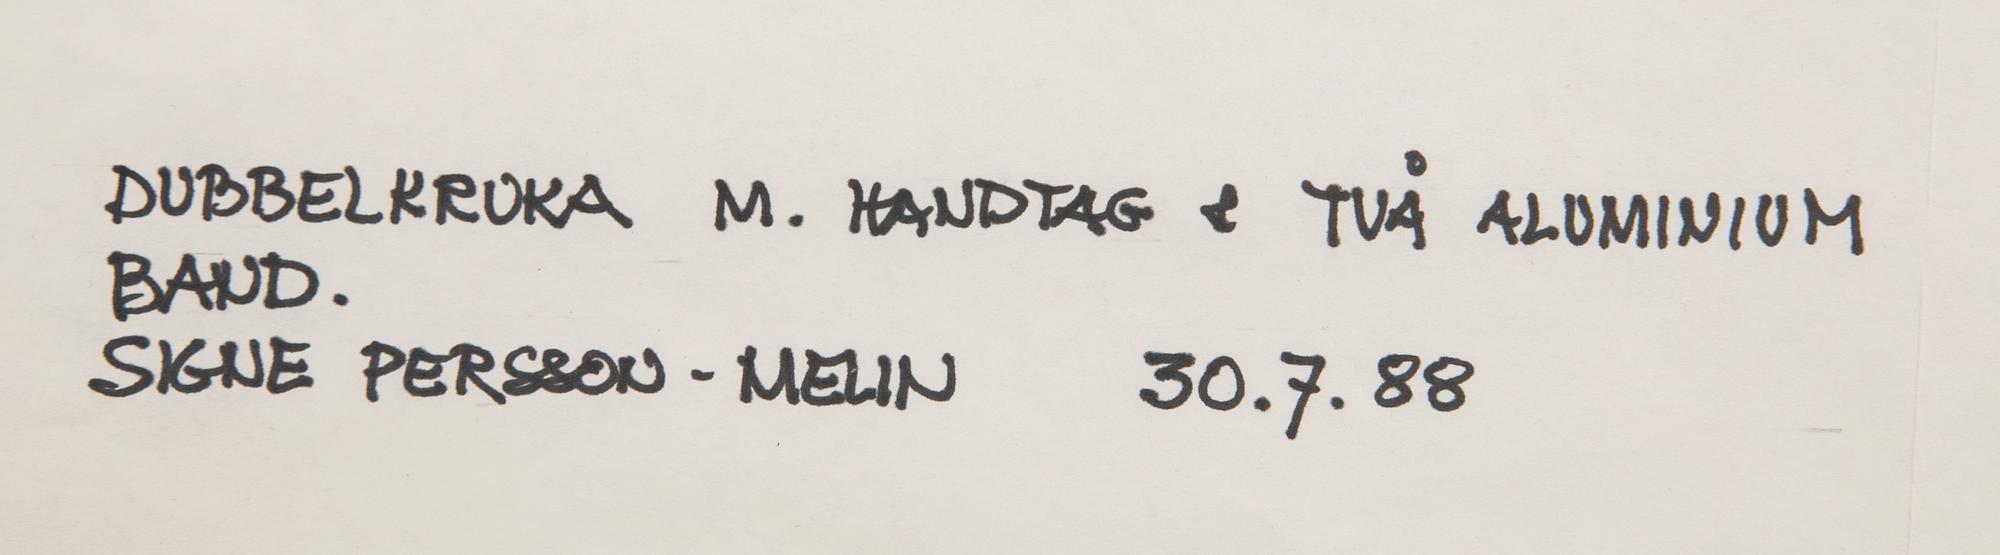 DUBBELKRUKA M. HANDTAG & TVÅ ALUMINIUM
BAND.
SIGNE PERSSON-MELIN 30.7.88